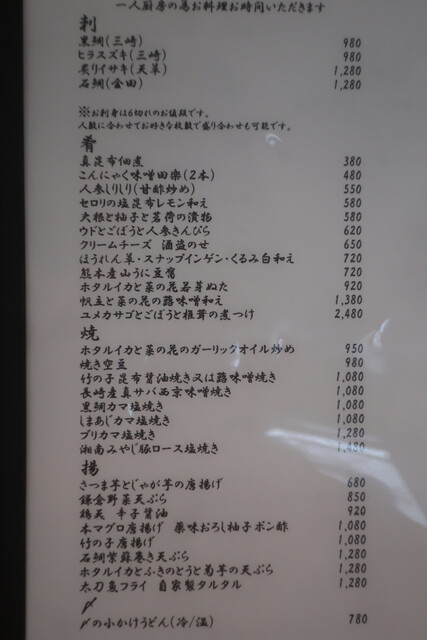 一人厨房の為お料理お時間いただきます
刺
黒鯛(三崎) 980
ヒラスズキ(三崎) 980
炙りイサキ(天草) 1,280
石鯛(金田) 1,280
※お刺身は6切れのお値段です。
人数に合わせてお好きな枚数で盛り合わせも可能です。
肴
真昆布佃煮 380
こんにゃく味噌田楽(2本) 480
人参しりしり(甘酢炒め) 550
セロリの塩昆布レモン和え 580
大根と柚子と茗荷の漬物 580
ウドとごぼうと人参きんぴら 620
クリームチーズ 酒盗のせ 650
ほうれん草・スナップインゲン・くるみ白和え 720
熊本産山うに豆腐 720
ホタルイカと菜の花若芽ぬた 920
帆立と菜の花の蕗味噌和え 1,380
ユメカサゴとごぼうと椎茸の煮つけ 2,480
焼
ホタルイカと菜の花のガーリックオイル炒め 950
焼き空豆 980
竹の子昆布醤油焼き又は蕗味噌焼き 1,080
長崎産真サバ西京味噌焼き 1,080
黒鯛カマ塩焼き 1,080
しまあじカマ塩焼き 1,080
ブリカマ塩焼き 1,280
湘南みやじ豚ロース塩焼き 1,480
揚
さつま芋とじゃが芋の唐揚げ 680
鎌倉野菜天ぷら 850
鶏天 辛子醤油 920
本マグロ唐揚げ 薬味おろし柚子ポン酢 1,080
竹の子唐揚げ 1,080
石鯛紫蘇巻き天ぷら 1,280
ホタルイカとふきのとうと菊芋の天ぷら 1,280
太刀魚フライ 自家製タルタル 1,280
〆
〆の小かけうどん(冷/温) 780